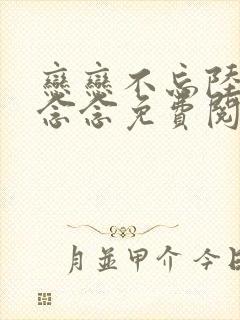 戀戀不忘陸
念念免費閱
月並甲介 今日